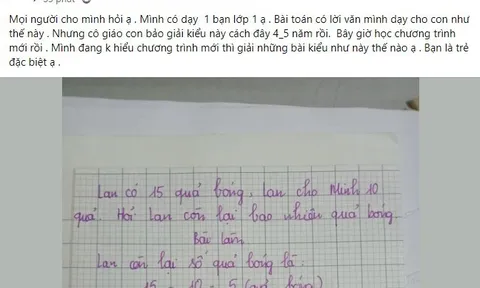 Mọi người cho mình hỏi ạ . Mình có dạy 1 bạn lớp 1 ạ . Bài toán có lời văn mình dạy cho con như
thế này . Nhưng cô giáo con bảo giải kiểu này cách đây 4_5 năm rồi. Bây giờ học chương trình
mới rồi . Mình đang k hiểu chương trình mới thì giải những bài kiểu như này thế nào ạ . Bạn là trẻ
đặc biệt ạ .
Lan có 15 quả bóng, Lan cho Minh 10
quả. Hỏi Lan còn lại bao nhiêu quả bóng.
Bài làm
Lan còn lại số quả bóng là:
15 - 10 = 5 (quả bóng)